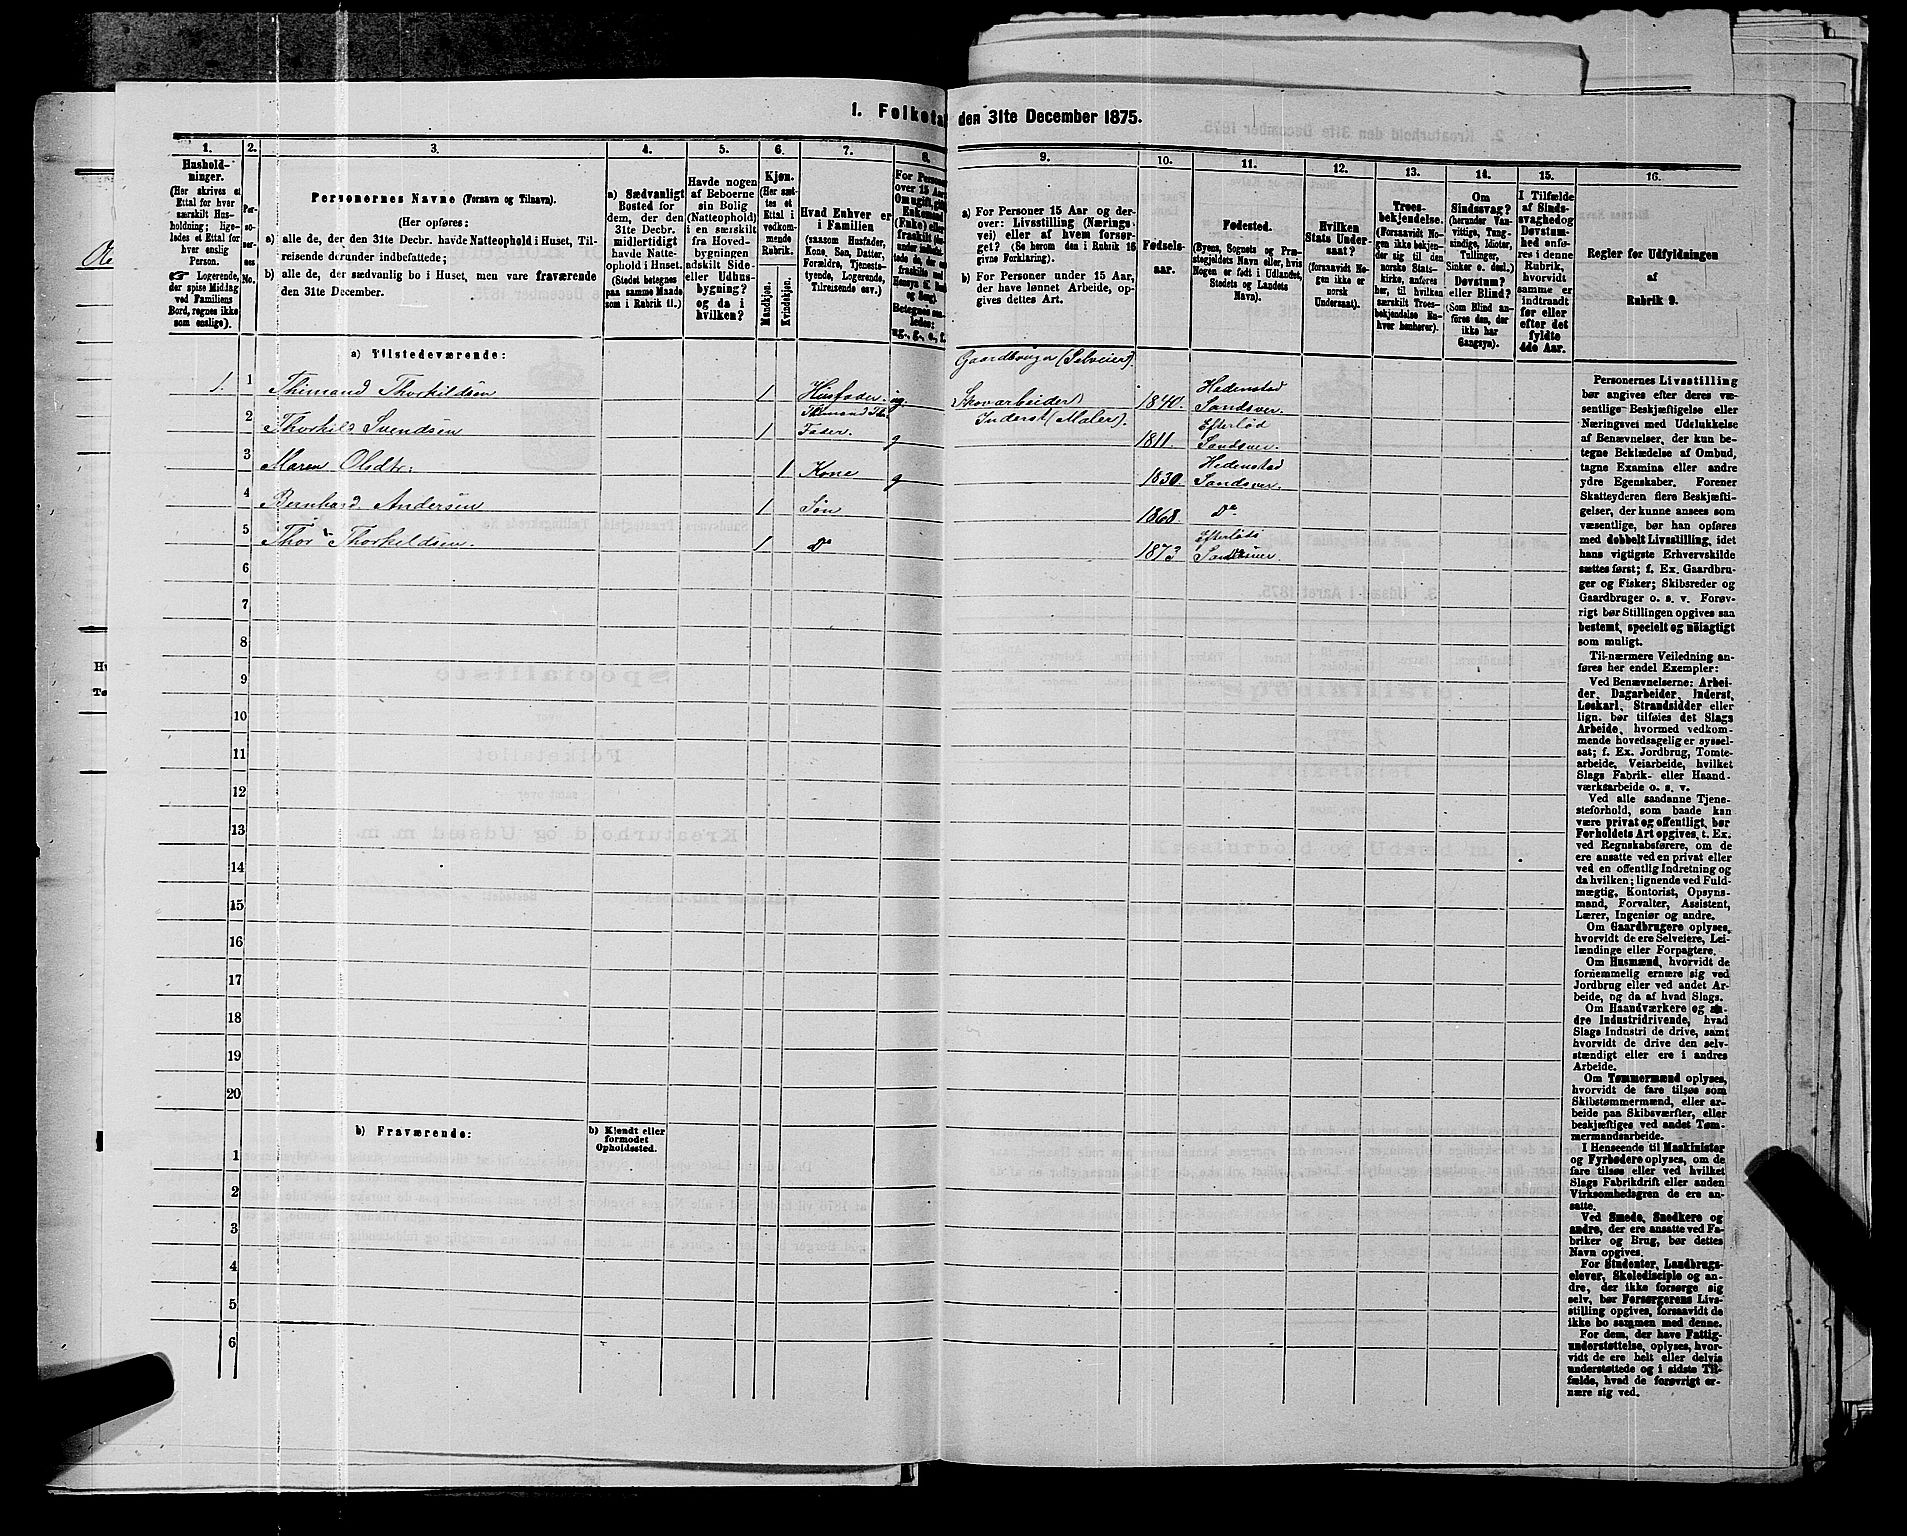 1. Folketal den 31te December 1875.
1.
2.
3.
4.
5.
6.
7.
8.
9.
10.
11.
12.
13.
14.
15.
16.
Hushold-
ninger.
(Her skrives et
Ettal for hver
særskilt Hus-
holdning; lige-
ledes et Ettal for
hver enslig
Person.
☞ Logerende,
der spise Middag
ved Familiens
Bord, regnes ikke
som enslige).
Per-
so-
ner-
nes
No.
Personernes Navne (Fornavn og Tilnavn).
(Her opføres:
a) alle de, der den 31te Decbr. havde Natteophold i Huset, Til-
reisende derunder indbefattede;
b) alle de, der sædvanlig bo i Huset, men vare fraværende
den 31te December.
a) Sædvanligt
Bosted for
dem, der den
31te Decbr.
midlertidigt
havde Natte-
ophold i Huset.
(Stedet betegnes
paa samme Maade
som i Rubrik 11.)
Havde nogen
af Beboerne
sin Bolig
(Natteophold)
i en særskilt
fra Hoved-
bygningen
adskilt Side-
eller Udhus-
bygning?
og da i
hvilken?
Kjøn.
(Her sæt-
tes et
Ettal i
vedkom-
mende
Rubrik.)
Mandkjøn.
Kvindekjøn.
Hvad Enhver er
i Familien
(saasom Husfader,
Kone, Søn, Datter,
Forældre, Tjeneste-
tyende, Logerende,
Tilreisende osv.)
For Personer
over 15 Aar,
Om ugift, gift,
Enkemand
(Enke) eller
fraskilt
Betegnes saa-
ledes:
ug., g., e., f.
a) For Personer 15 Aar og der-
over: Livsstilling (Nærings-
vei) eller af hvem forsør-
get? (Se herom den i Rubrik 16
givne Forklaring).
b) For Personer under 15 Aar,
der have lønnet Arbeide, op-
gives dettes Art.
Fødsels-
aar.
Fødested.
(Byens, Sognets og Præ-
stegjeldets Navn eller, hvis
Nogen er født i Udlandet,
Stedets og Landets
Navn).
Hvilken
Stats Under-
saat?
(foraavidt No-
gen ikke er
norsk
Undersaat).
Troes-
bekjendelse.
(Forsaavidt No-
gen ikke bekjen-
der sig til den
norske Stats-
kirke, anføres
her, til hvilken
særskilt Troes-
bekjendelse En-
hver henhører).
Om
Sindssvag?
(herunder Van-
vittige, Tung-
sindige, Idioter,
Tullinger,
Sinker o. desl.)
Døvstum?
eller Blind?
(Som Blind an-
føres den, der
ikke har
Gangsyn).
I Tilfælde
af Sinds-
svaghed og
Døvstum-
hed anfø-
res i denne
Rubrik,
hvorvidt
samme er
indtraadt
før eller
efter det
fyldte
4de Aar.
Regler for Udfyldningen
af
Rubrik 9.
a) Tilstedeværende:
Gaardbruger (Selveier).
1. 1 Thimand Thorkildsen 1 Husfader. ug. Skovarbeider 1840. Hedenstad Sandsver.
2 Thorkils Svendsen 1 Fader. g Inderst (Maler). 1811. Efterlød Sandsver.
3 Maren Olsdtr: 1 Kone g 1830. Hedenstad Sandsver.
4 Bernhard Andersen 1 Søn 1868. Do
5 Thor Thorkeldsen. 1 Do 1873 Efterløds Sandsver.
6
7
8
9
10
11
12
13
14
15
16
17
18
19
20
b) Fraværende:
b) Kjendt eller
formodet
Opholdssted.
1
2
3
4
5
6
Personernes Livsstilling
bør angives efter deres væ-
sentlige Beskjæftigelse eller
Næringsvei med Udelukkelse
af Benævnelser, der kun be-
tegne Beklædelse af Ombud,
tagne Examina eller andre
ydre Egenskaber. Forener
Skatteyderen flere Beskjæfti-
gelser, der kunne ansees som
væsentlige, bør han opføres
med dobbelt Livsstilling, idet
hans vigtigste Erhvervskilde
sættes først; f. Ex. Gaardbru-
ger og Fisker; Skibsreder og
Gaardbruger o. s. v. Forøv-
rigt bør Stillingen opgives saa
bestemt, specielt og nöiagtigt
som muligt.
Til nærmere Veiledning an-
føres her endel Exempler:
Ved Benævnelserne: Arbei-
der, Dagarbeider, Inderst,
Løskarl, Strandsidder eller
lign. bør tilføies det Slags
Arbeide, hvormed vedkom-
mende hovedsagelig er syssel-
sat; f. Ex. Jordbrug, Tomte-
arbeide, Veiarbeide, hvilket
Slags Fabrik- eller Haand-
værksarbeide o. s. v.
Ved alle saadanne Tjene-
steforhold, som baade kan
være privat og offentligt, bør
Forholdets Art opgives, t. Ex.
ved Regnskabsførere, om de
ere ansatte ved en privat eller
ved en offentlig Indretning og
da hvilken; lignende ved Fuld-
mægtig, Kontorist, Opsyns-
mand, Forvalter, Assistent,
Lærer, Ingeniør og andre.
Om Gaardbrugere oplyses,
hvorvidt de ere Selveiere, Lei-
lændinge eller Forpagtere.
Om Husmænd, hvorvidt de
fornemmelig ernære sig ved
Jordbrug eller ved andet Ar-
beide, og da af hvad Slags.
Om Haandværkere og an-
dre Industridrivende, hvad
Slags Industri de drive, samt
hvorvidt de drive den selv-
stændigt eller ere i andres
Arbeide.
Om Tømmermænd oplyses,
hvorvidt de fare tilsøs som
Skibstømmermænd, eller ar-
beide paa Skibsværfter, eller
beskjæftiges ved andet Tøm-
mermandsarbeide.
I Henseende til Maskinister
og Fyrbødere oplyses, om de
fare tilsøs eller ved hvilket
Slags Fabrikdrift eller anden
Virksomhedsgren de ere an-
satte.
Ved Smede, Snedkere og
andre, der ere ansatte ved Fa-
briker og Brug, bør dettes
Navn opgives.
For Studenter, Landbrugs-
elever, Skoledisciple og an-
dre, der ikke forsørge sig
selv, bør Forsørgerens Livs-
stilling opgives, forsaavidt de
ikke bo sammen med denne.
For dem, der have Fattig-
understøttelse, oplyses, hvor-
vidt de ere helt eller delvis
understøttede og i sidste Til-
fælde, hvad de forøvrigt er-
nære sig ved.